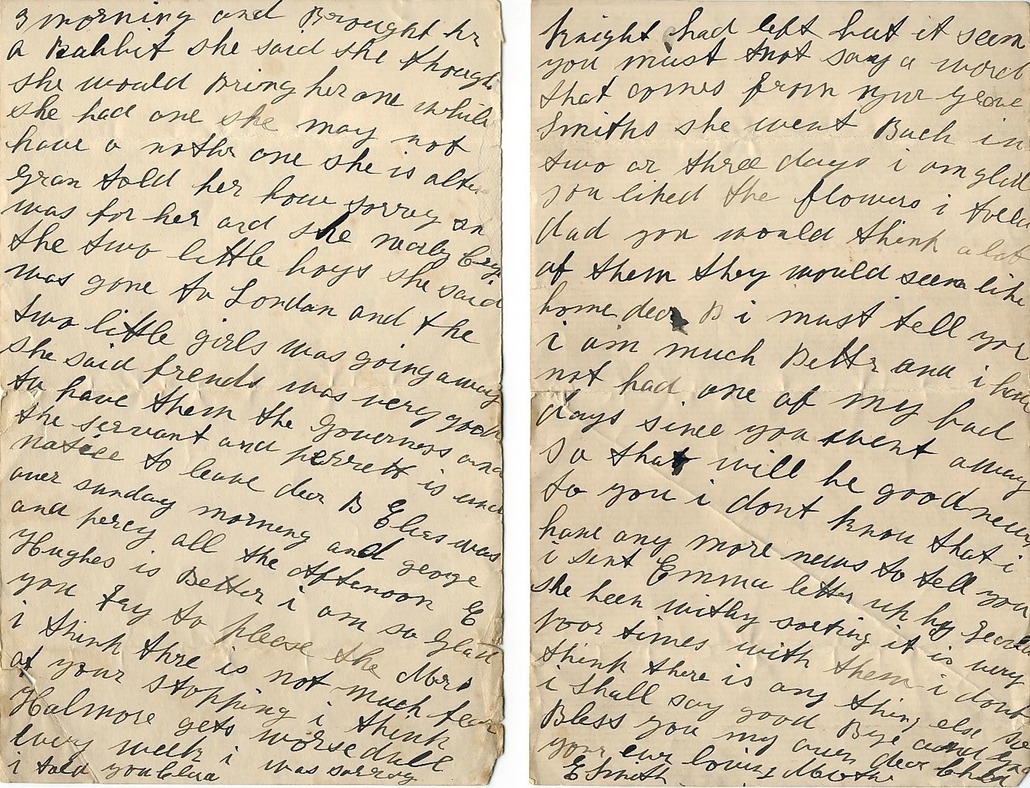 morning and Brought hr
a Rabbit she said she though
she would Bring her one while
she had one she may not
have a nothr one she is
gran told her how sorry
was for her and she nearly
the two little boys she said
was gone to London and the
two little girls was going away
she said frends was very good
to have them the Governess and
the servant and perrett is
notice to leave dear B Elies was
over sunday morning and george
and percy all the afternoon E
Hughes is Better i am so glad
you try to please the Mrs
i think thre is not much fear
of your stopping i think
Halmore gets worse dull
every week i was sorry
i told you
Knight had left but it seem
you must not say a word
that comes from
Smiths she went Back in
two or three days i am glad
you liked the flowers i
dad you would think a lot
of them they would seem like
home dear B i must tell you
i am much Bettr and i have
not had one of my bad
days since you went away
so that will be good news
to you i dont know that i
have any more news to tell you
i sent Emma letter up by
she been withy sorting it is very
poor times with them i dont
think there is any thing else
i shall say good Bye and
Bless you my own dear
your ever loving Mother
E Smith